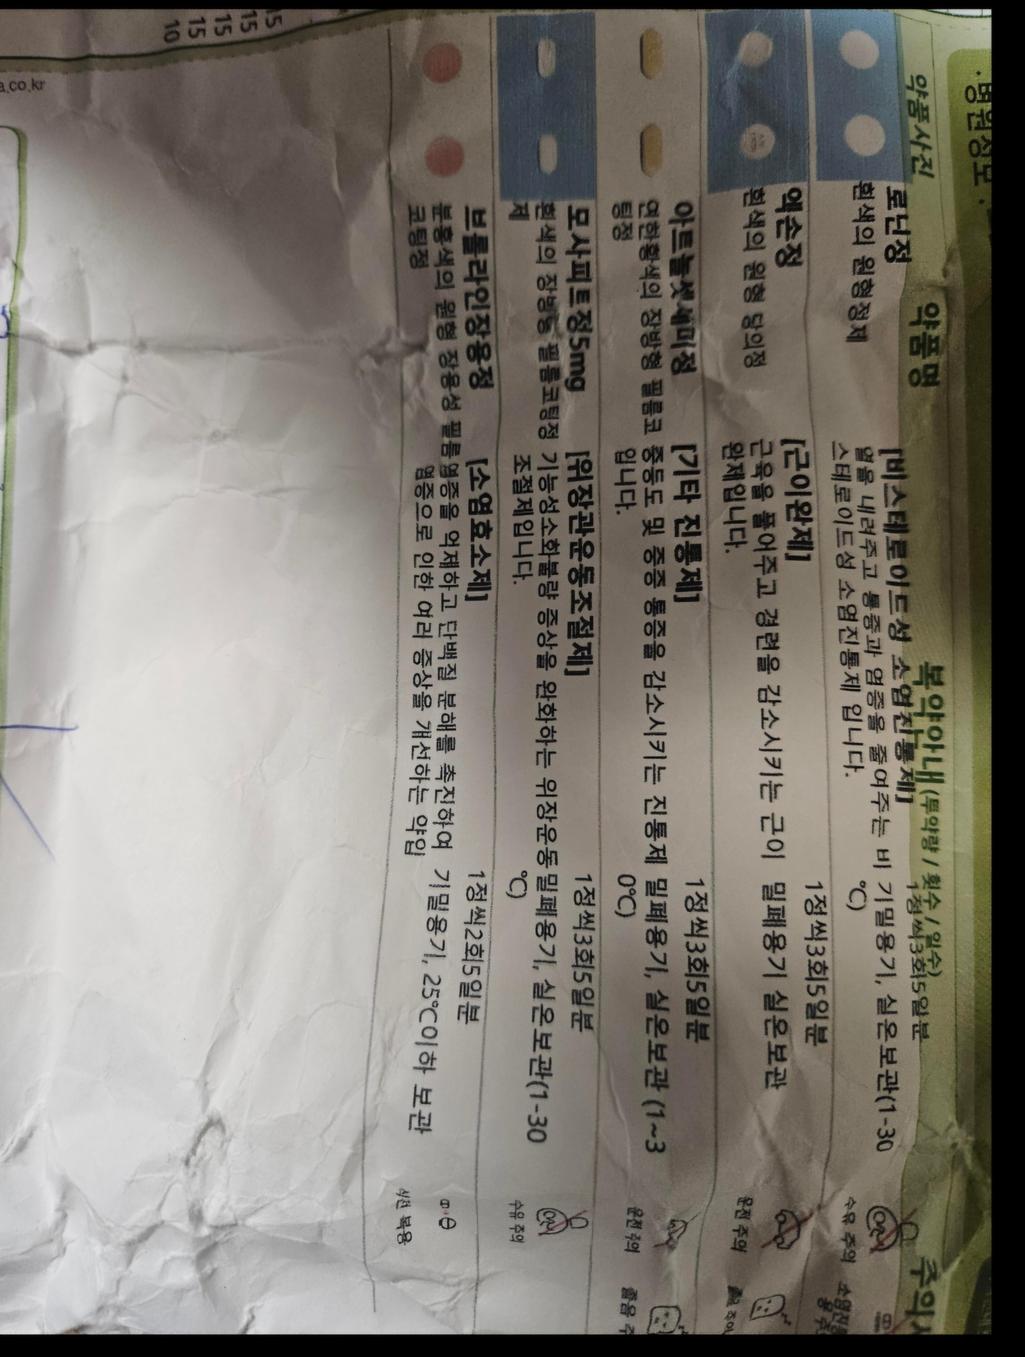 병원정보
약품사진 약품명 복약안내 (투약량 / 횟수 / 일수)
로난정
흰색의 원형정제
[비스테로이드성 소염진통제]
열을 내려주고 통증과 염증을 줄여주는 비
스테로이드성 소염진통제 입니다.
1정씩3회5일분
기밀용기, 실온보관(1-30
℃)
수유 주의
엑손정
흰색의 원형 당의정
[근이완제]
근육을 풀어주고 경련을 감소시키는 근이
완제입니다.
1정씩3회5일분
밀폐용기 실온보관
운전 주의
졸음 주의
아트놀셋세미정
연한황색의 장방형 필름코
팅정
[기타 진통제]
중등도 및 중증 통증을 감소시키는 진통제
입니다.
1정씩3회5일분
밀폐용기, 실온보관 (1~3
0℃)
운전 주의
졸음 주
모사피트정5mg
흰색의 장방형 필름코팅정
제
[위장관운동조절제]
기능성소화불량 증상을 완화하는 위장운동
조절제입니다.
1정씩3회5일분
밀폐용기, 실온보관(1-30
℃)
수유 주의
브롤라인장용정
분홍색의 원형 장용성 필름
코팅정
[소염효소제]
염증을 억제하고 단백질 분해를 촉진하여
염증으로 인한 여러 증상을 개선하는 약입
1정씩2회5일분
기밀용기, 25℃이하 보관
식전 복용
15
15
15
15
10
a.co.kr